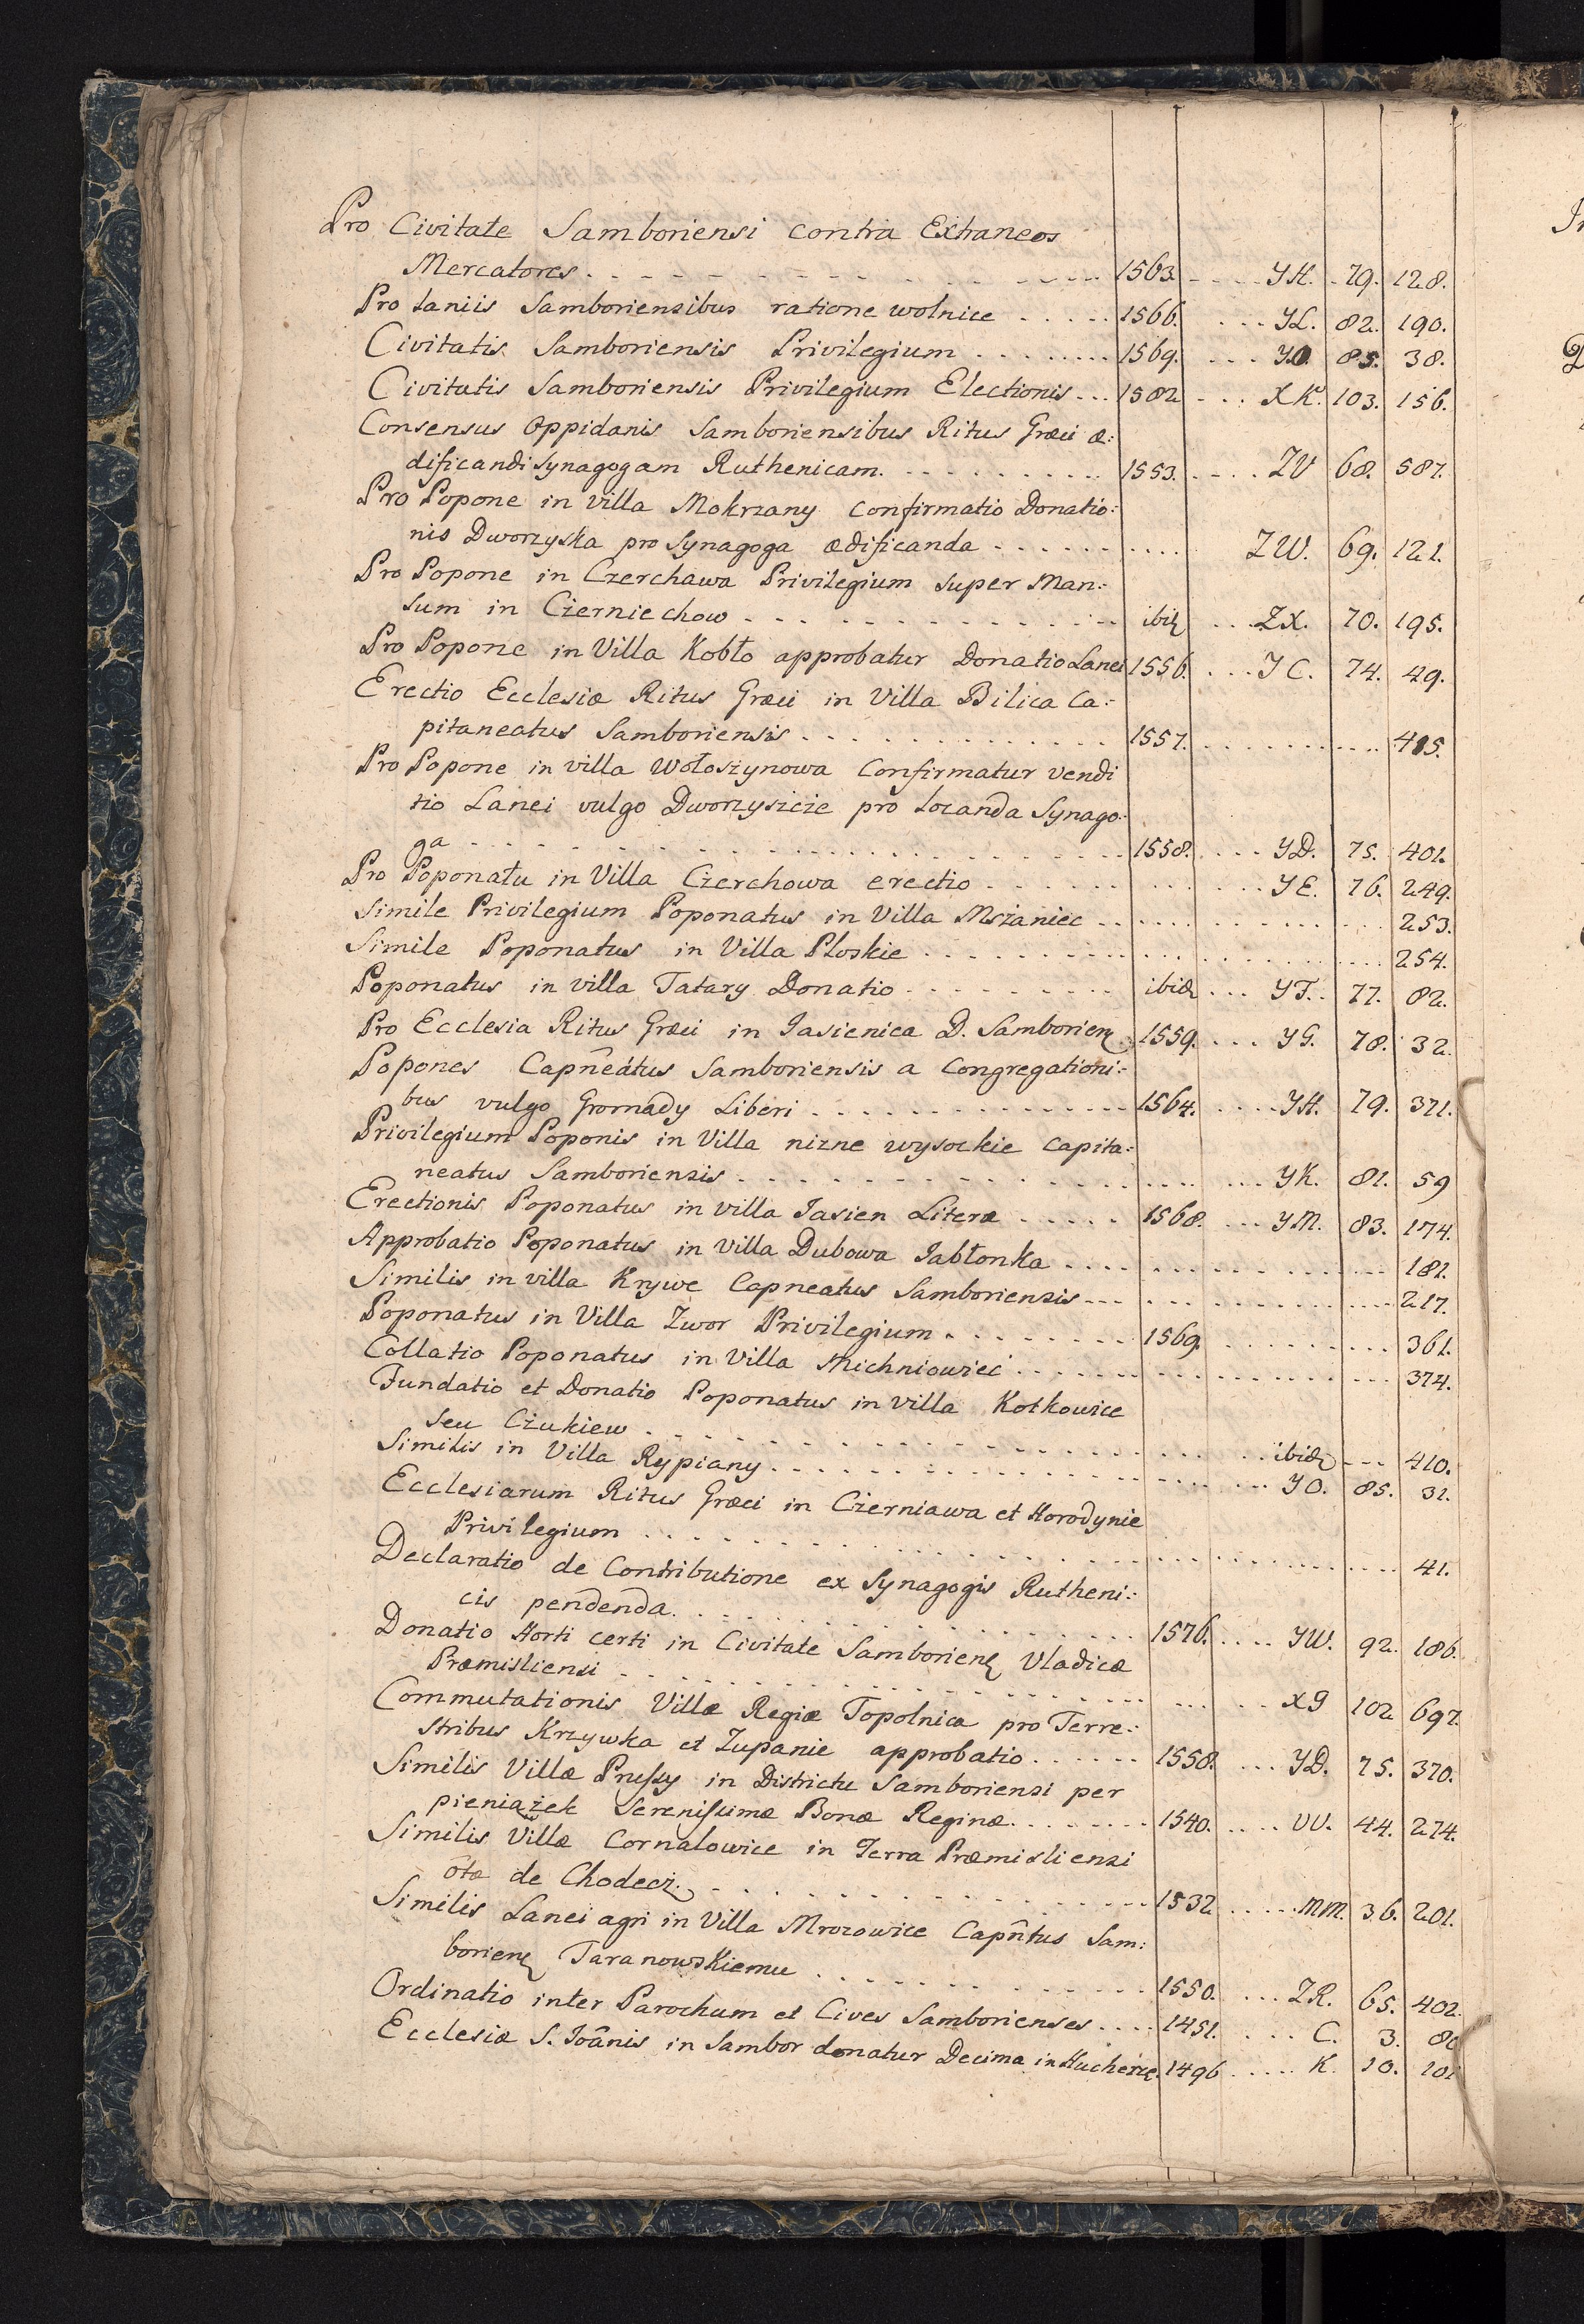 Pro Civitate Samboriensi contra Extraneos
Mercatores 1563. YH. 79. 128.
Pro Laniis Samboriensibus ratione wolnice 1566. YL. 82. 190.
Civitatis Samboriensis Privilegium 1569. YO. 85. 38.
Civitatis Samboriensis Privilegium Electionis 1582 XK. 103. 156.
Consensus Oppidanis Samboriensibus Ritus Græci æ:
dificandi Synagogam Ruthenicam. 1553. ZV 68. 587.
Pro Popone in Villa Mokrzany Confirmatio Donatio:
nis Dworzyska pro Synagoga ædificanda ZW. 69. 121.
Pro Popone in Czerchawa Privilegium super Man:
sum in Czerniechow ibid ZX. 70. 195.
Pro Popone in Villa Kobło approbatur Donatio Lanei 1556. YC. 74. 49.
Erectio Ecclesiæ Ritus Græci in Villa Bilica Ca:
pitaneatus Samboriensis 1557. 415.
Pro Popone in villa Wołoszynowa Confirmatur vendi
tio Lanei vulgo Dworzyszcze pro Locanda Synago:
ga 1558. YD. 75. 401.
Pro Poponatu in Villa Czerchowa erectio YE. 76. 249.
Simile Privilegium Poponatus in Villa Mszaniec 253.
Simile Poponatus in Villa Ploskie 254.
Poponatus in villa Tatary Donatio ibid YF. 77. 82.
Pro Ecclesia Ritus Græci in Jasienica D. Samborien 1559. YG. 78. 32.
Popones Capneatus Samboriensis a Congregationi:
bus vulgo Gromady Liberi 1564. YH. 79. 371.
Privilegium Poponis in Villa nizne wysockie Capita:
neatus Samboriensis YK. 81. 59
Erectionis Poponatus in villa Jasien Literæ 1568. YM. 83. 174.
Approbatio Poponatus in Villa Dubowa Jabłonka 181.
Similis in villa Krywe Capneatus Samboriensis 217.
Poponatus in Villa Zwor Privilegium 1569. 361.
Collatio Poponatus in Villa Michniowiec 374.
Fundatio et Donatio Poponatus in villa Kotkowice
seu Czukiew ibid 410.
Similis in Villa Rypiany YO. 85. 31.
Ecclesiarum Ritus Græci in Czerniawa et Horodynie
Privilegium 41.
Declaratio de Contributione ex Synagogis Rutheni:
cis pendenda. 1576. YW. 92. 186.
Donatio Horti certi in Civitate Samborien Vladicæ
Præmisliensi Xg 102 697.
Commutationis Villæ Regiæ Topolnica pro Terre:
stribus Krzywka et Zupanie approbatio 1558. YD. 75. 370.
Similis Villæ Prussy in Districtu Samboriensi per
pieniążek Serenissimæ Bonæ Reginæ. 1540. VV. 44. 274.
Similis Villæ Cornalowice in Terra Præmisliensi
otæ de Chodecz. 1532 MM. 36. 201.
Similis Lanei agri in Villa Mrozowice Capntus Sam:
borien Taranowskiemu 1550. ZR. 65. 402.
Ordinatio inter Parochum et Cives Samborienses 1451. C. 3.
Ecclesiæ S. Joanis in Sambor donatur Decima in 1496 K. 10. 101